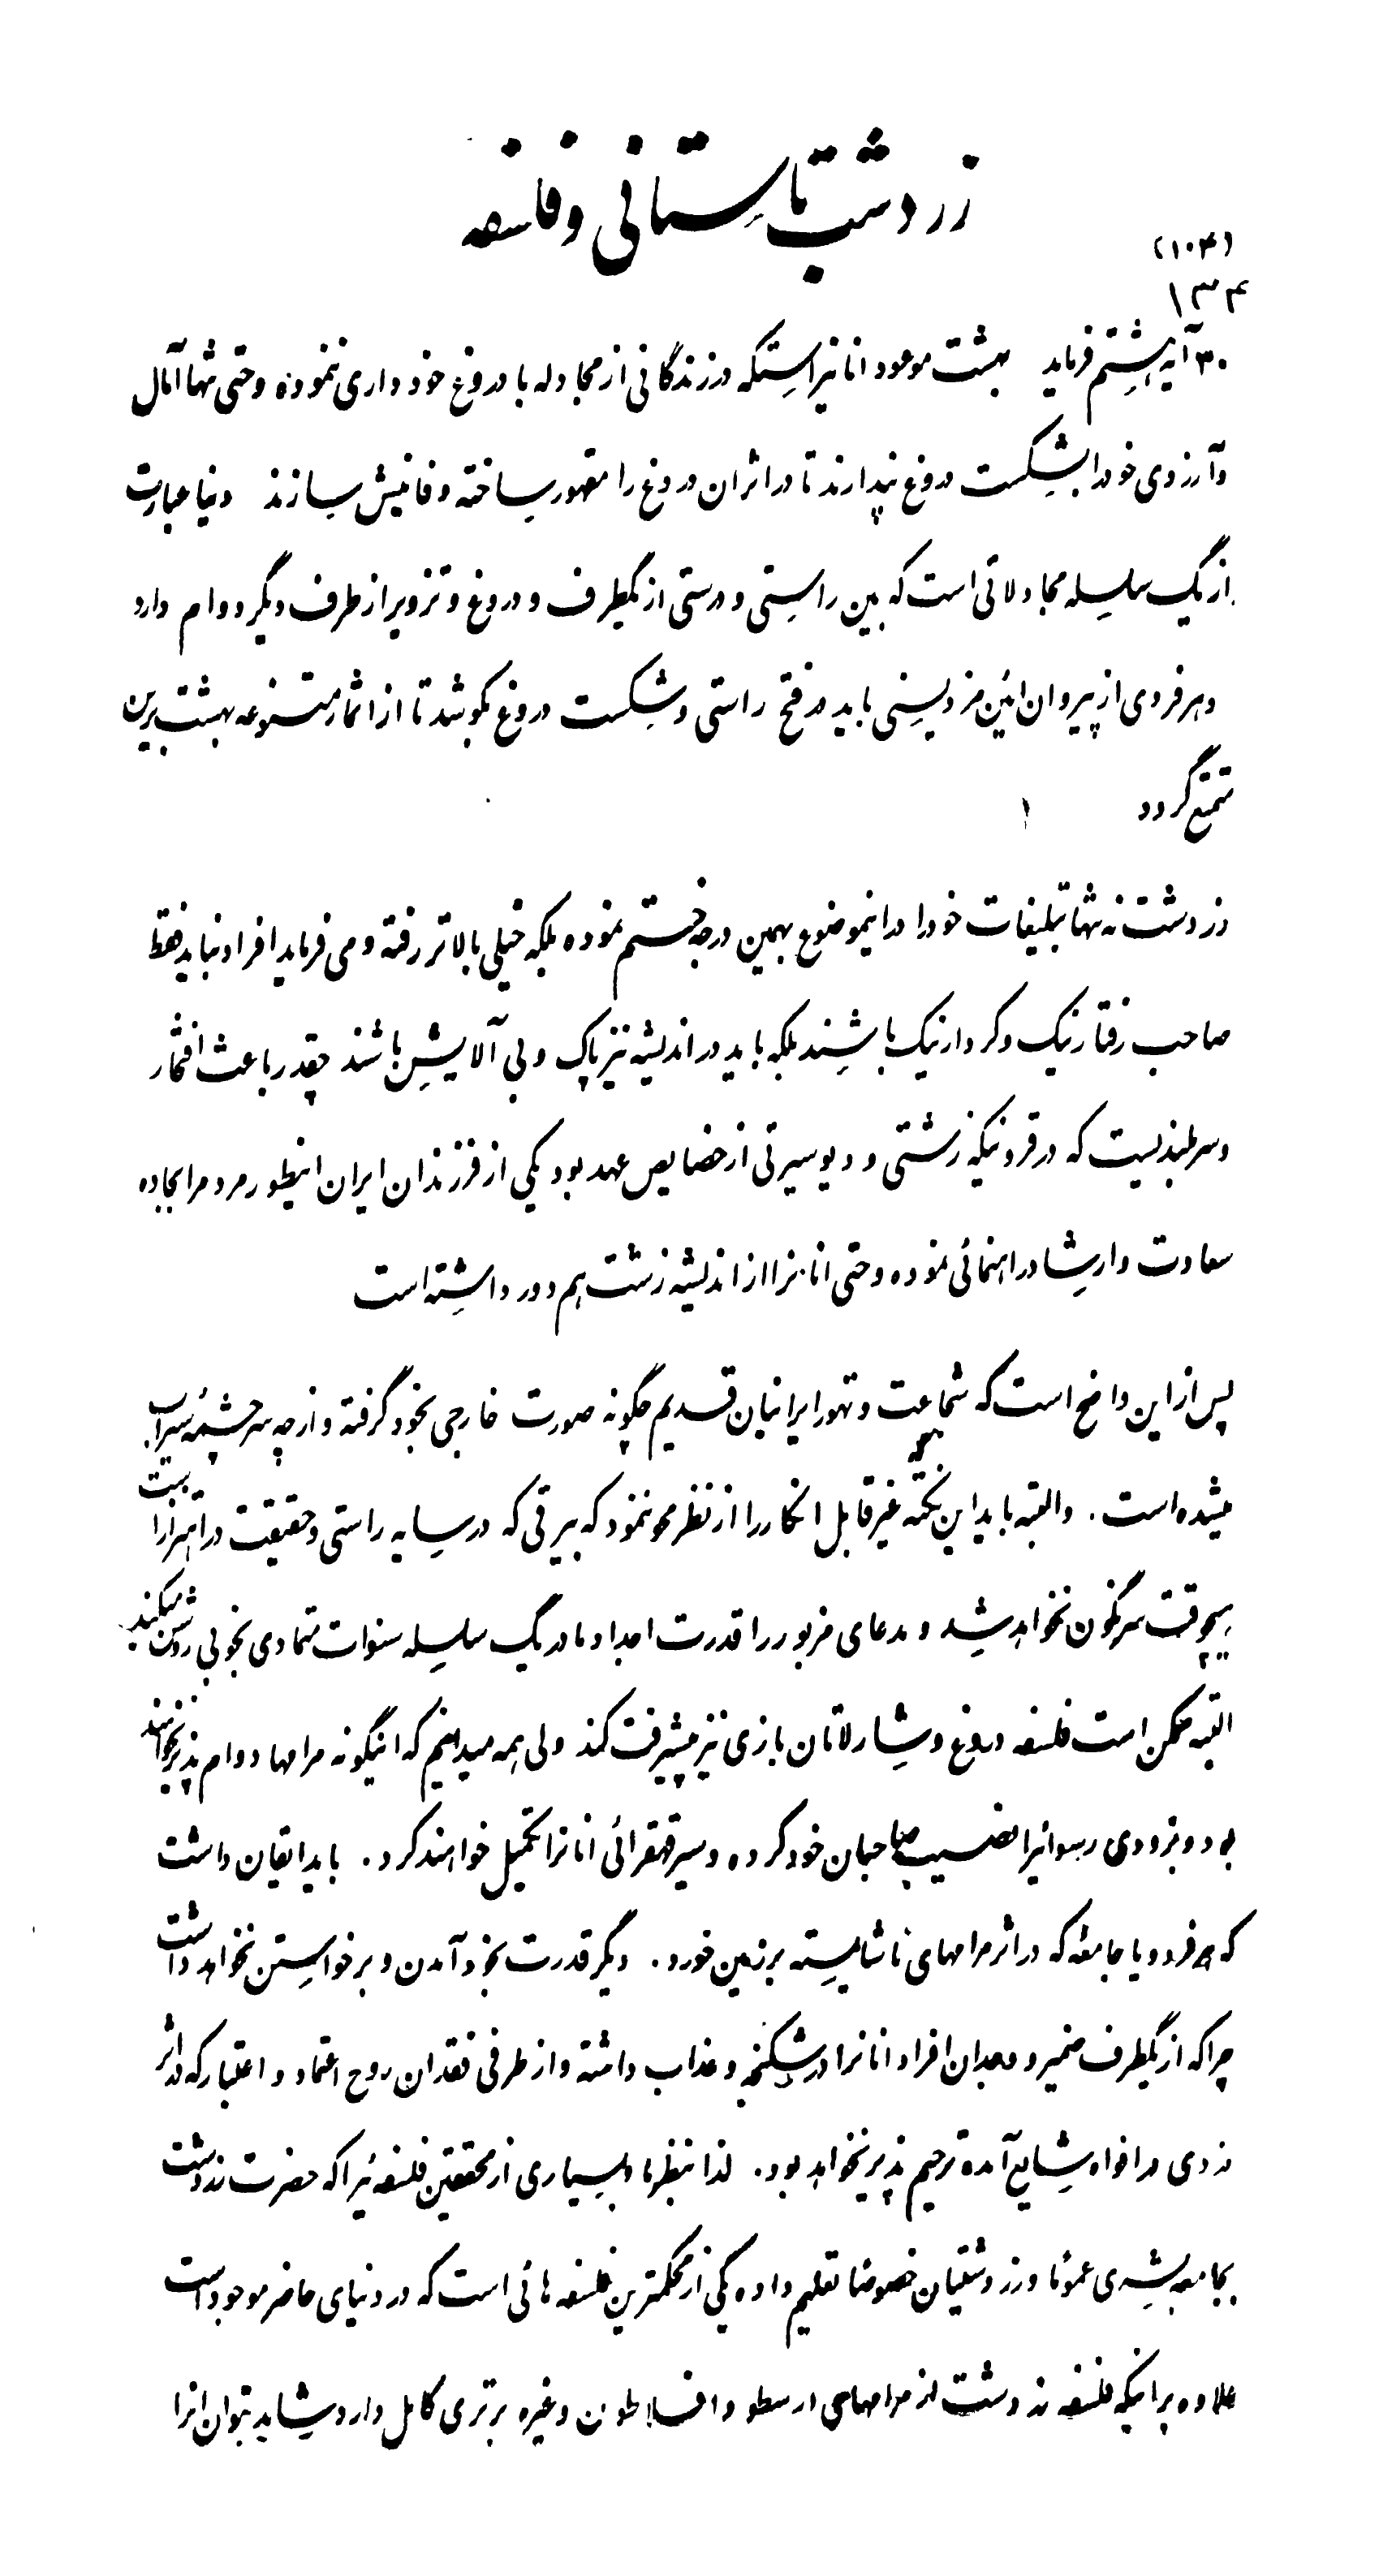 زردشت باستانی و فلسفه
(۱۰۴)
۱۳۴
۳۰ آیه هشتم فرماید بهشت موعود انانیراستکه در زندگانی از مجادله با دروغ خودداری ننموده و حتی تنها آمال
و آرزوی خود را بشکست دروغ بندارند تا در اثر ان دروغ را مقهور ساخته و فانیش سازند دنیا عبارت
از یک سلسله مجادلاتی است که بین راستی و درستی از یکطرف و دروغ و تزویر از طرف دیگر دوام دارد
و هر فردی از پیروان ائین مزدیسنی باید در فتح راستی و شکست دروغ بکوشد تا از اثمار متنوعه بهشت برین
متمتع گردد ۱
زردشت نه تنها تبلیغات خود را در اینموضوع بهمین درجه ختم نموده بلکه خیلی بالاتر رفته و می فرماید افراد نباید فقط
صاحب رفتار نیک و کردار نیک باشند بلکه باید در اندیشه نیز پاک و بی آلایش باشند چقدر باعث افتخار
و سربلندیست که در قرونیکه زشتی و دیوسیرتی از خصایص عهد بود یکی از فرزندان ایران اینطور مردم را بجاده
سعادت و ارشاد راهنمائی نموده و حتی انانرا از اندیشه زشت هم دور داشته است
پس از این واضح است که شجاعت و تهور ایرانیان قدیم چگونه صورت خارجی بخود گرفته و از چه سرچشمهٔ سیراب
میشده است. و البته باید این نکته غیر قابل انکار را از نظر محو ننمود که بیرقی که در سایه راستی و حقیقت در اهتزار است
هیچوقت سرنگون نخواهد شد و مدعای مزبور را قدرت اجداد ما در یک سلسله سنوات متمادی بخوبی روشن میکند
البته ممکن است فلسفه دروغ و شارلاتان بازی نیز پیشرفت کند ولی همه میدانیم که اینگونه مرامها دوام پذیر نخواهند
بود و بزودی رسوائیرا نصیب صاحبان خود کرده و سیر قهقرائی انانرا تکمیل خواهند کرد. باید ایقان داشت
که هر فرد و یا جامعهٔ که در اثر مرامهای ناشایسته بر زمین خورد. دیگر قدرت بخود آمدن و برخواستن نخواهد داشت
چرا که از یکطرف ضمیر و وجدان افراد انانرا در شکنجه و عذاب داشته و از طرفی فقدان روح اعتماد و اعتبار که در اثر
نردی در افواه شایع آمده ترحیم پذیر نخواهد بود. لذا بنظر ما و بسیاری از محققین فلسفهٔ یرا که حضرت زردشت
بجامعه بشری عمومًا و زردشتیان خصوصًا تعلیم داده یکی از محکمترین فلسفه هائی است که در دنیای حاضر موجود است
علاوه بر اینکه فلسفه زردشت از مرامهای ارسطو و افلاطون و غیره برتری کامل دارد شاید بتوان انرا